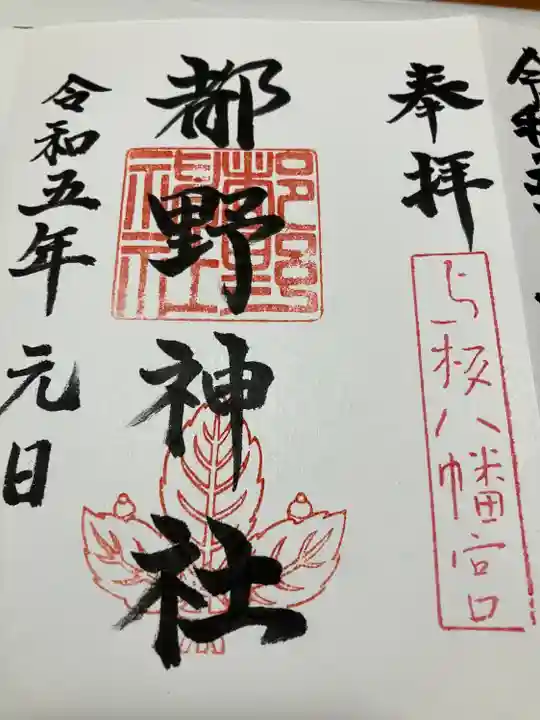 奉拝
都野神社
都野神社
令和五年 元日
八幡宮